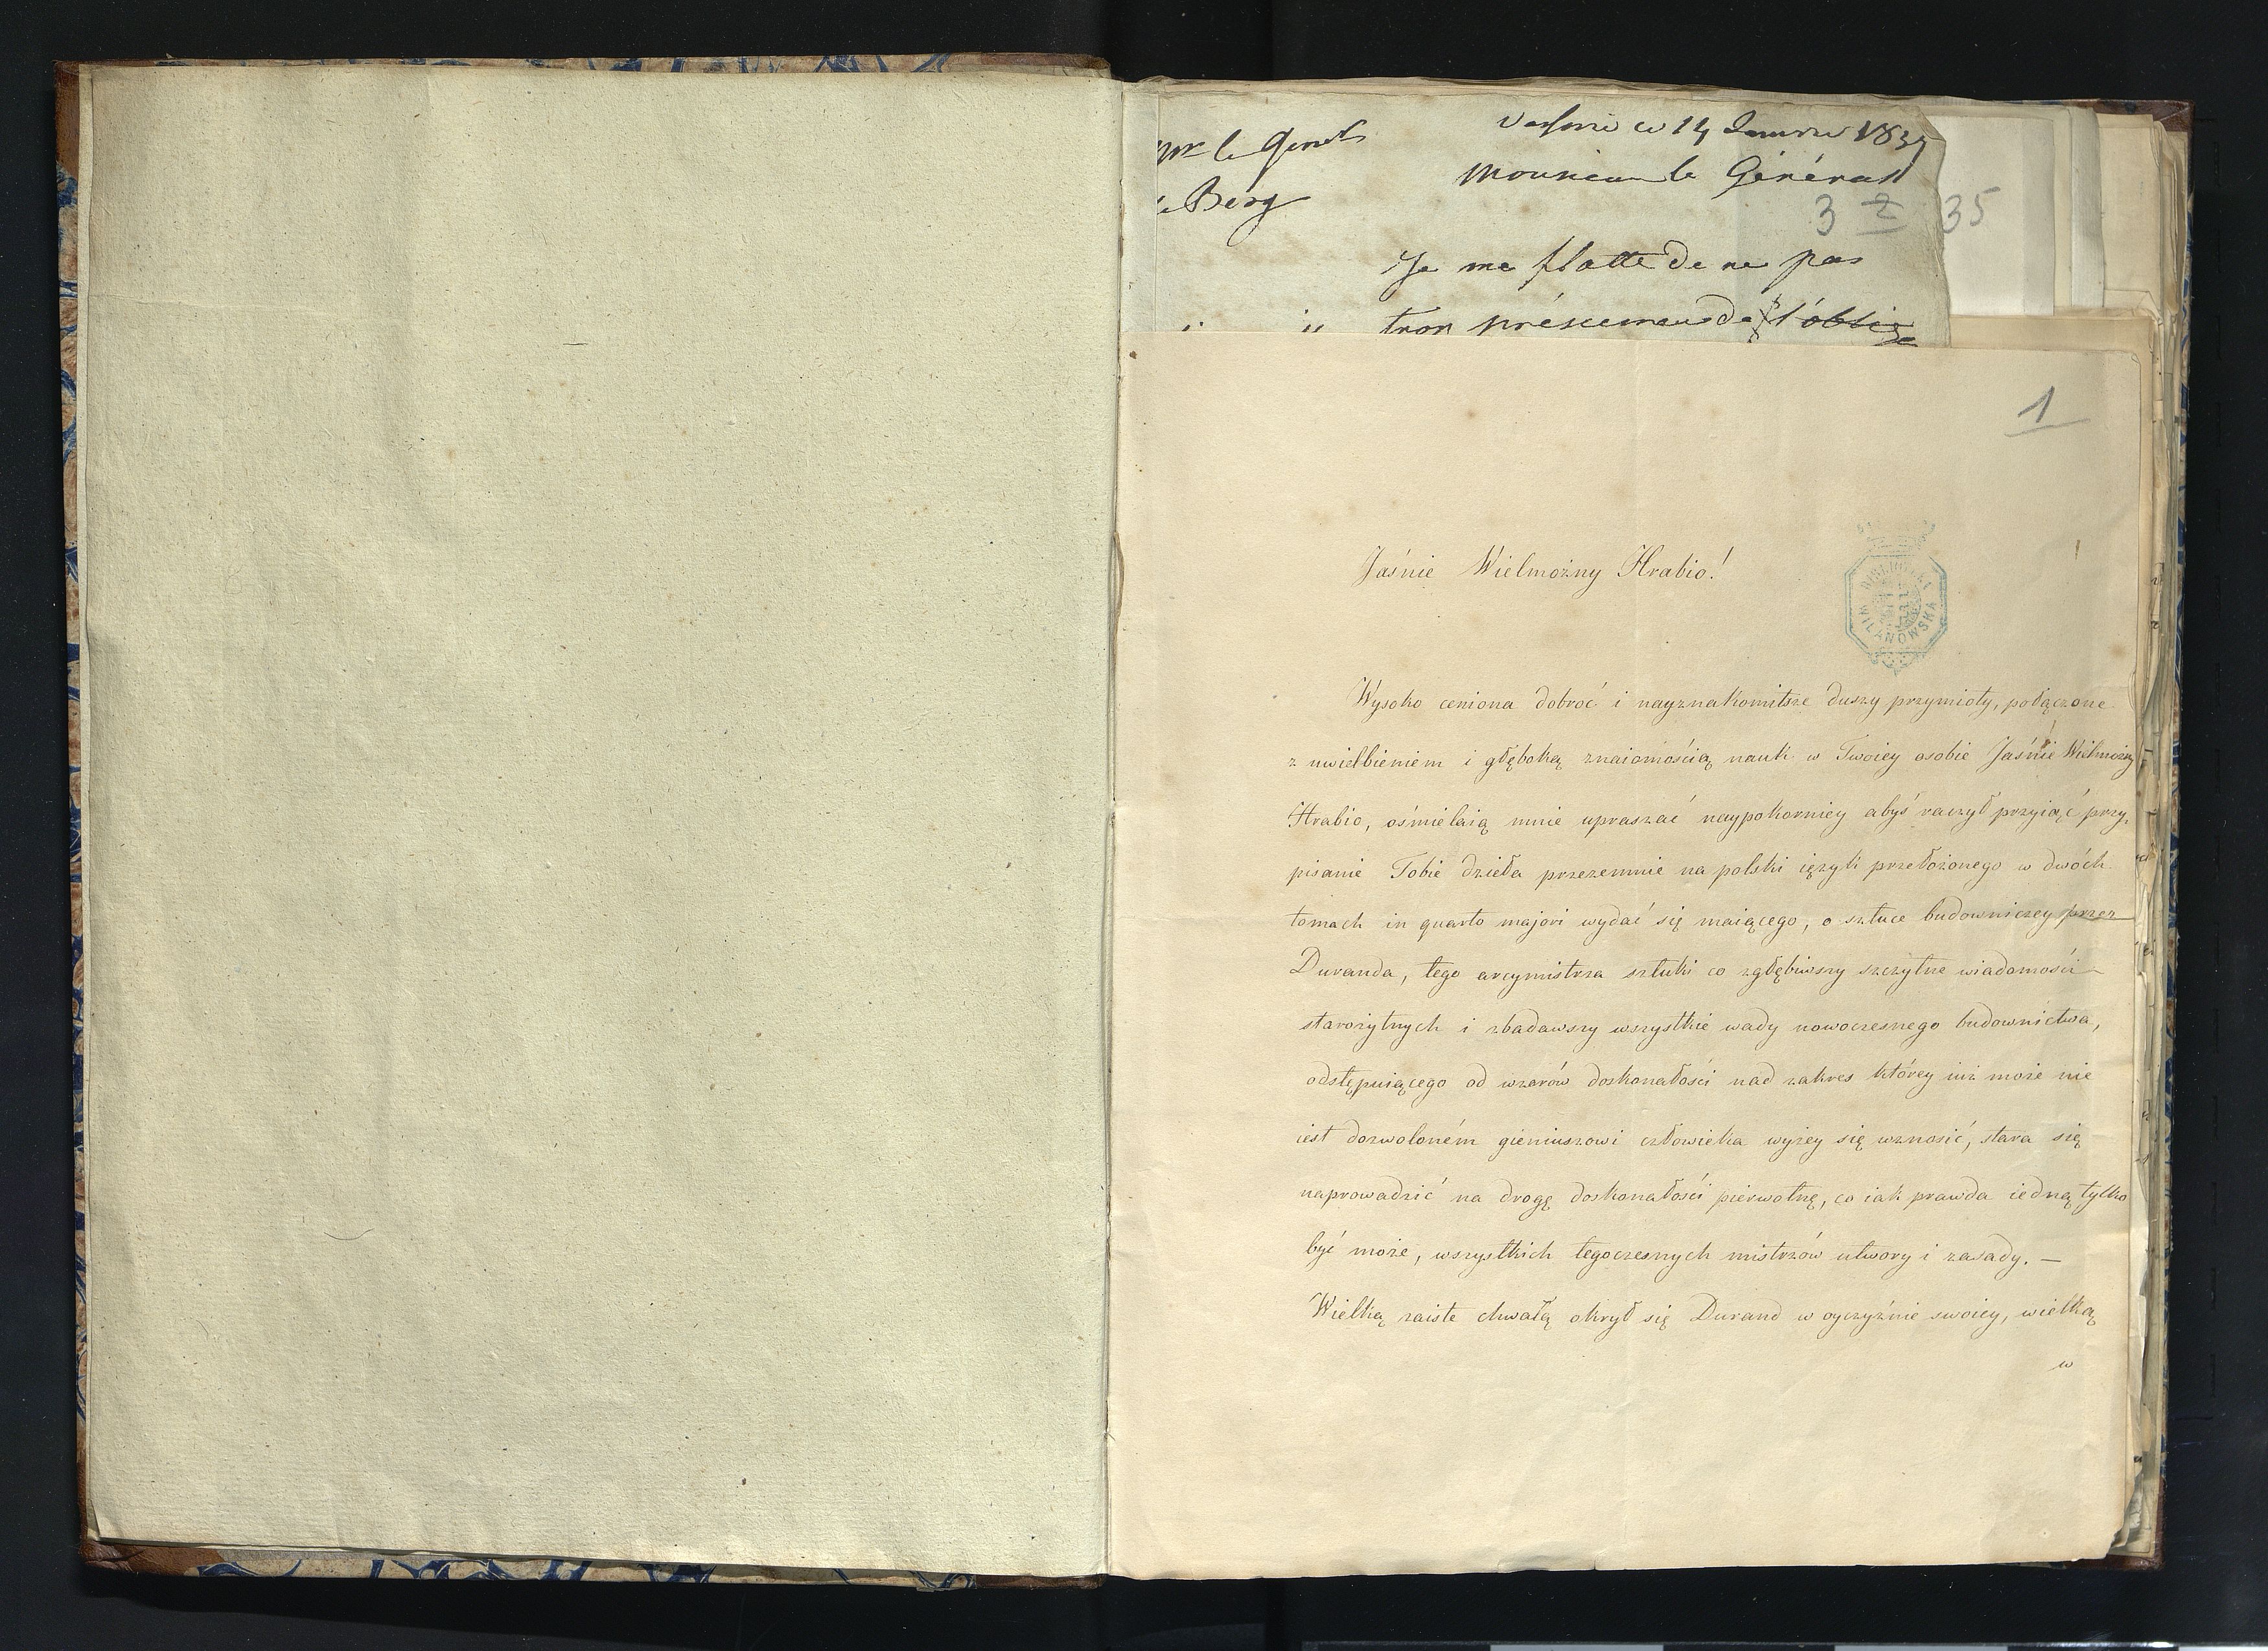 Mr le Genal
Berg
Varsovie ce 14 Janvier 183
Monsieur le Général
3 2 35
Je me flatte de ne pas
trop présumer de l'oblig
1
Jaśnie Wielmożny Hrabio!
BIBLIOTEKA WILANOWSKA
Wysoko ceniona dobroć i nayznakomitsze duszy przymioty, połączone
z uwielbieniem i głęboką znaiomością nauk w Twoiey osobie Jaśnie Wielmożny
Hrabio, ośmielaią mnie upraszać naypokorniey abyś raczył przyiąć przy,
pisanie Tobie dzieła przezemnie na polski ięzyk przełożonego w dwóch
tomach in quarto majori wydać się maiącego, o sztuce budowniczey przez
Duranda, tego arcymistrza sztuki co zgłębiwszy szczytne wiadomości
starożytnych i zbadawszy wszystkie wady nowoczesnego budownictwa,
odstępuiącego od wzorów doskonałości nad zakres którey iuż może nie
iest dozwoloném gieniuszowi człowieka wyżey się wznosić, stara się
naprowadzić na drogę doskonałości pierwotnę, co iak prawda iedną tylko
być może, wszystkich tegoczesnych mistrzów utwory i zasady. —
Wielką zaiste chwałą okrył się Durand w oyczyźnie swoiey, wielką
w